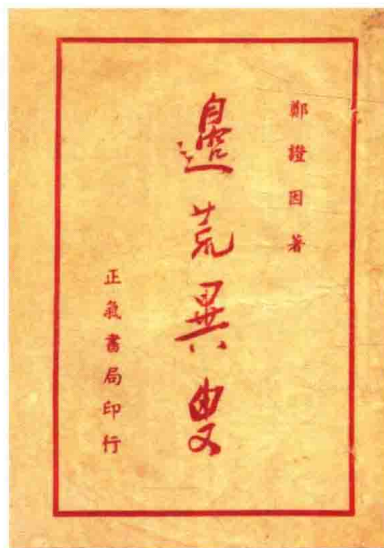 鄭證因著
邊荒異叟
正氣書局印行